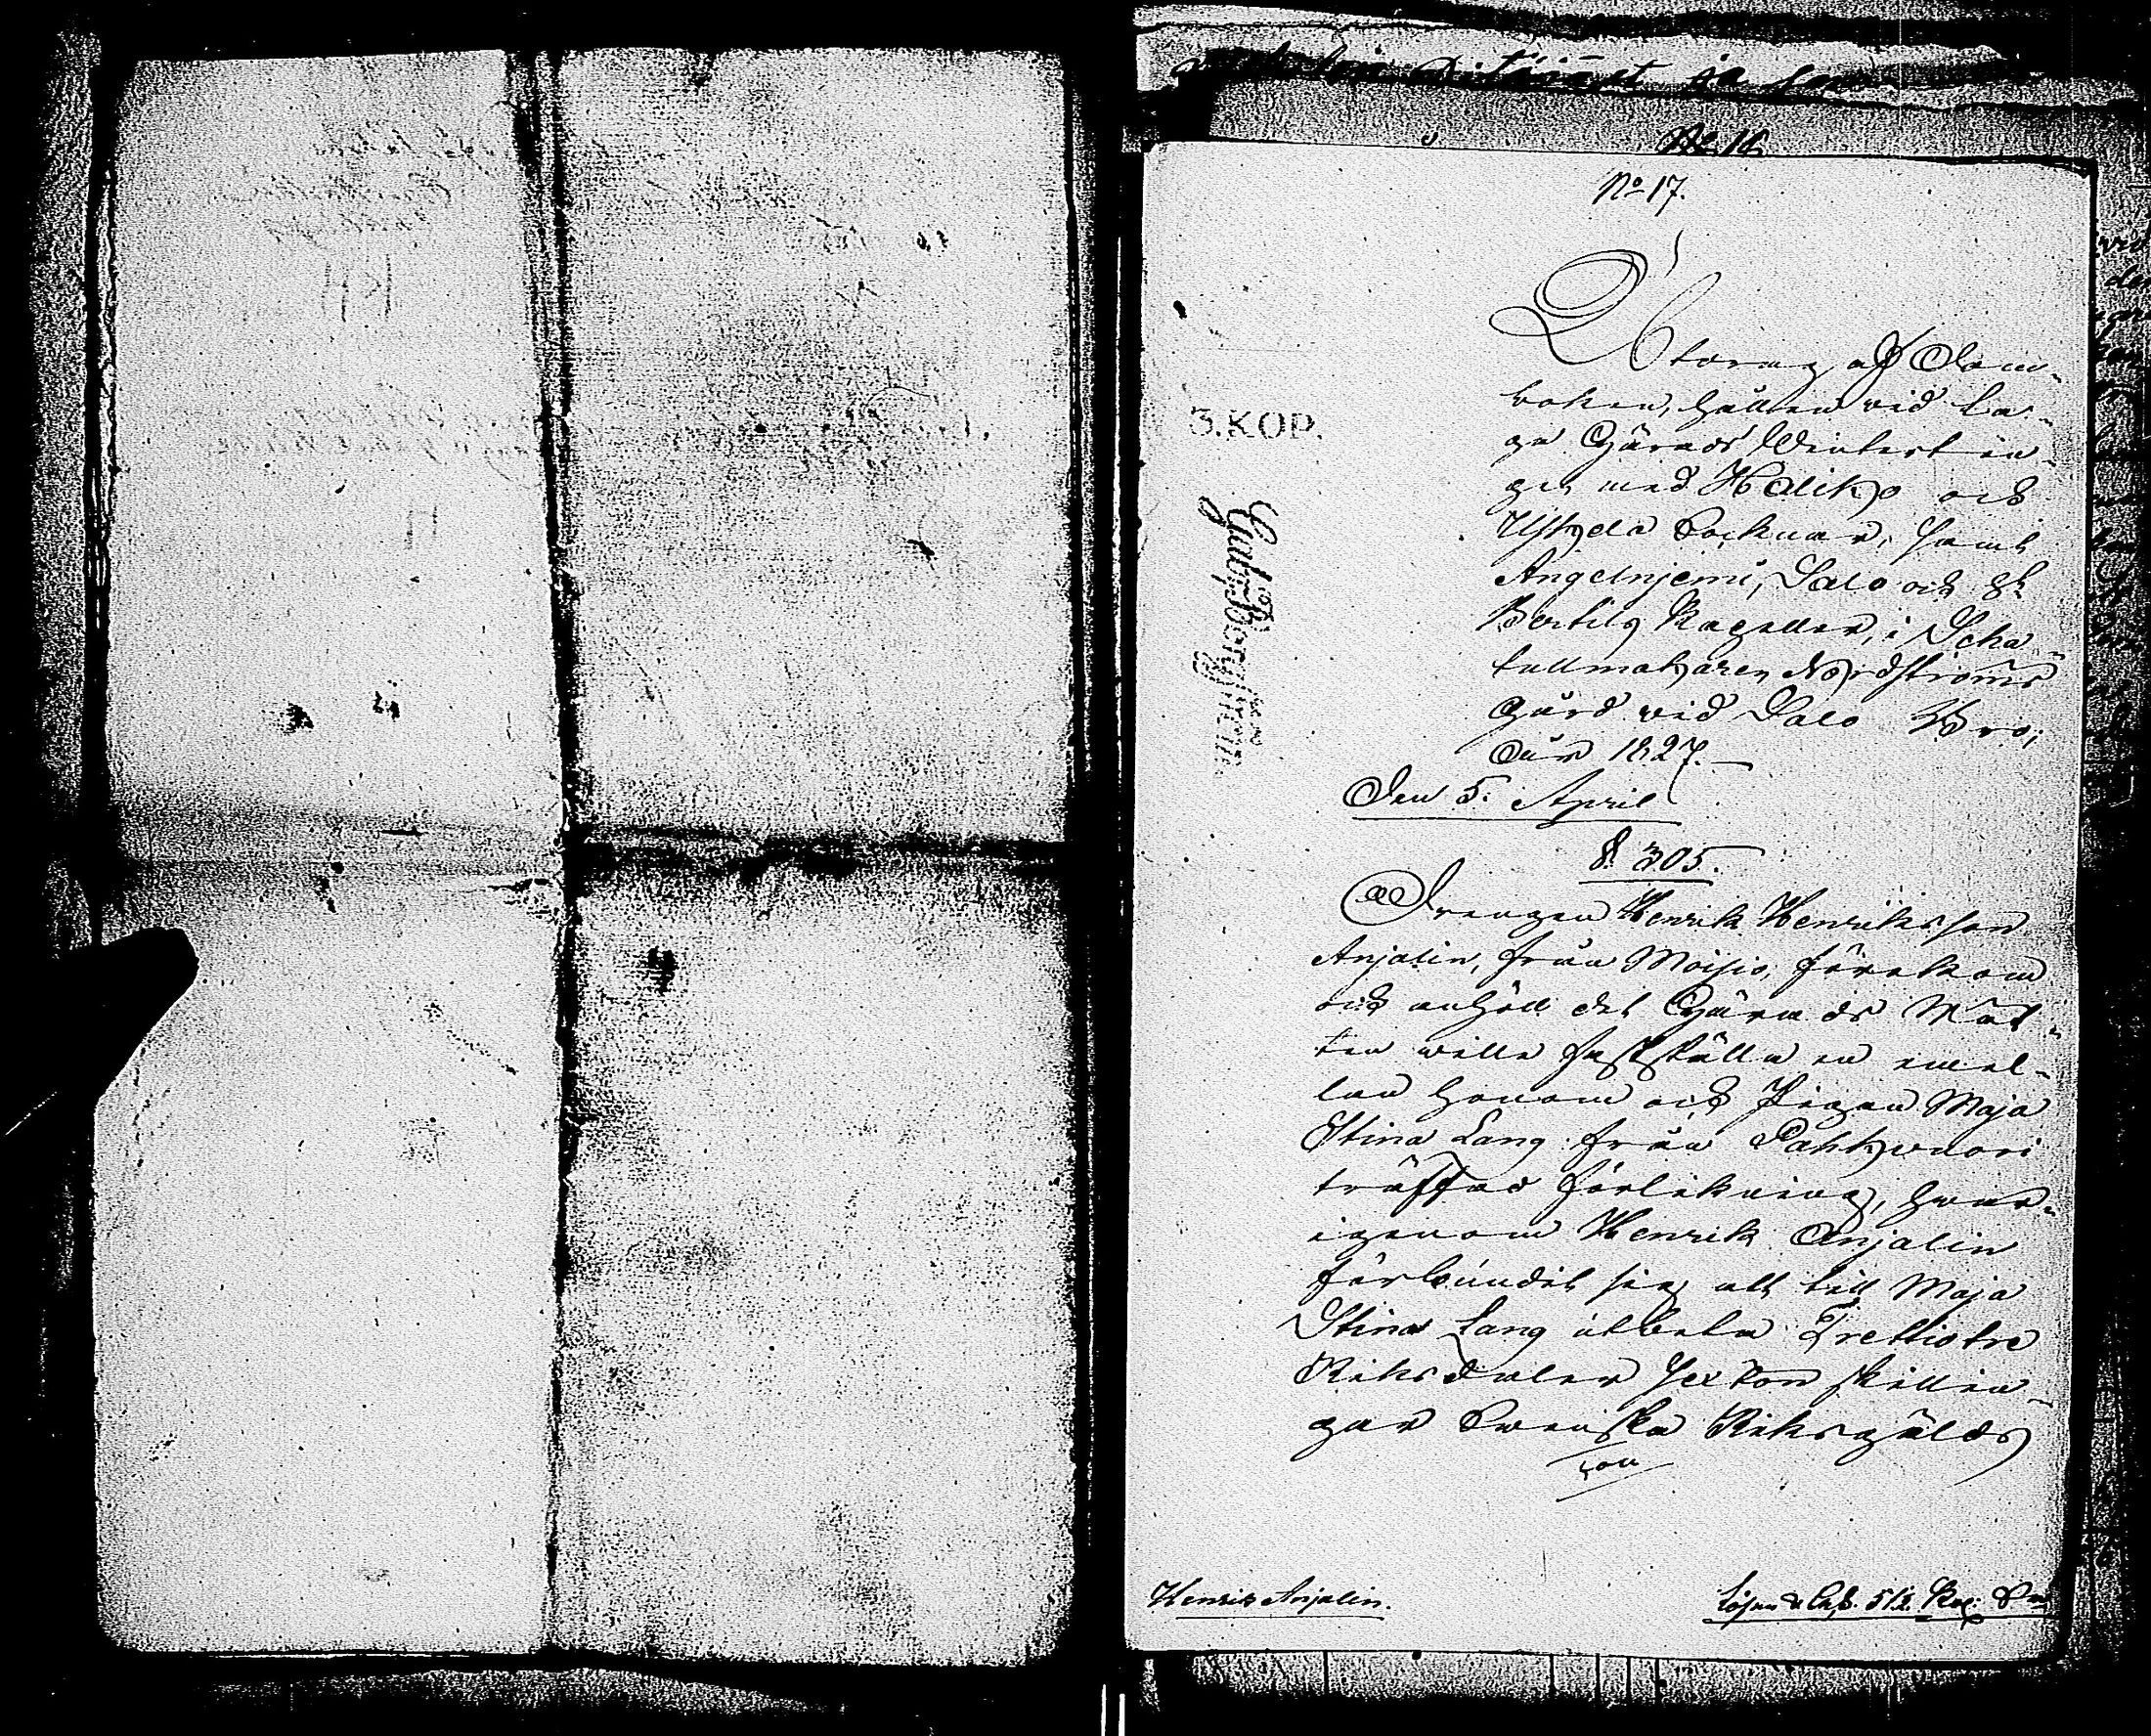 No 17.
Utdrag af Dom-
boken, hållen vid La-
ga Häradt Winterting
ger med Halikko och
Uskela Socknar, samt
Angelnjemi, Salo och St
Bertils Kapeller, i Scha-
tullmakaren Nordströms
gård vid Salo Bro,
Åur 1827.
Den 5. April
§. 305.
Drengen Henrik Henriksson
Anjalin, från Moisio, förekom
och anhöll det Härads Rät-
ten wille fastställa en emel-
lan honom och Pigan Maja
Stina Lang från Pahkvuori
träffad förlikning, hwar-
igenom Henrik Anjalin
förbundit sig att till Maja
Stina Lang utbetala Trettiotre
Riksdaler sexton skillin-
gar Swenska Riksgälds
3.KOP.
Henrik Anjalin.
Lösen